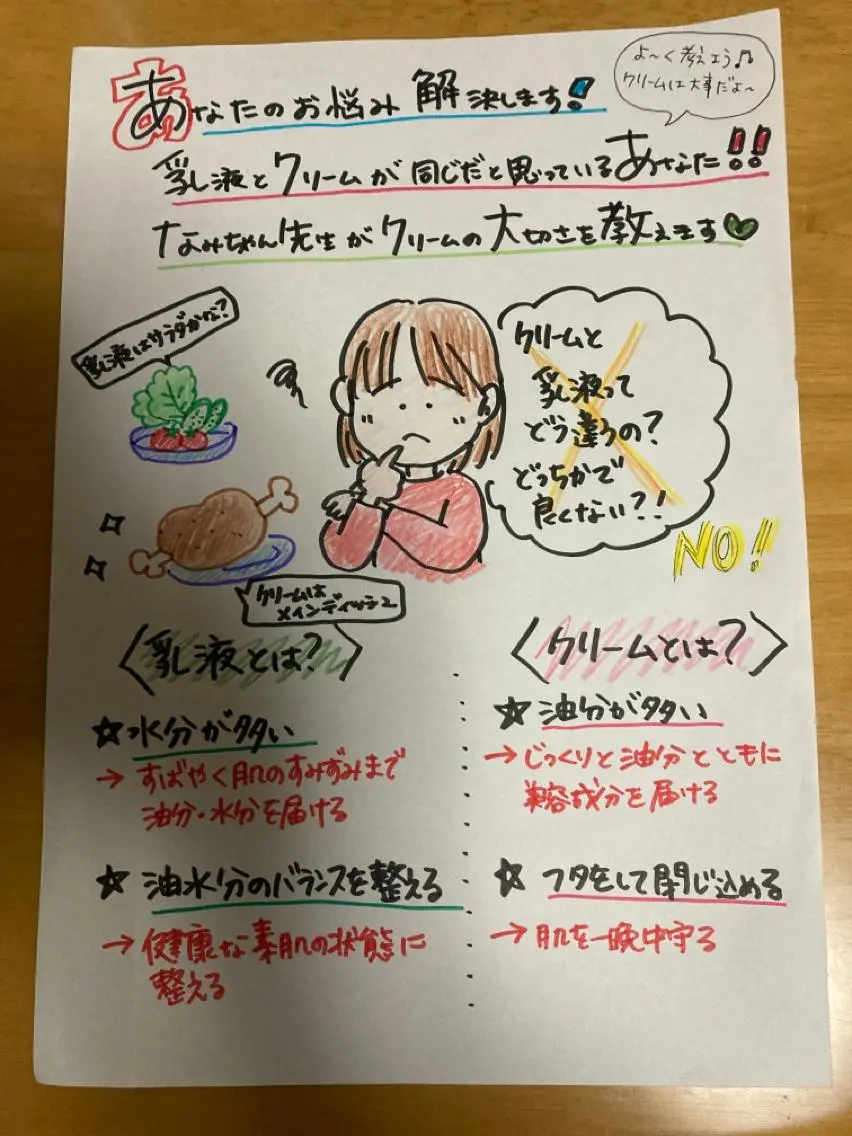 あなたのお悩み解決します!
よ〜く教えよう♫
クリームは大事だよ〜
乳液とクリームが同じだと思っているあなた!!
なみちゃん先生がクリームの大切さを教えます
乳液はサラダかな?
クリームと
乳液って
どう違うの?
どっちかで
良くない?!
NO!!
クリームは
メインディッシュ
〈乳液とは?〉
☆水分が多い
→すばやく肌のすみずみまで
油分・水分を届ける
☆油水分のバランスを整える
→健康な素肌の状態に
整える
〈クリームとは?〉
☆油分が多い
→じっくりと油分とともに
美容成分を届ける
☆フタをして閉じ込める
→肌を一晩中守る